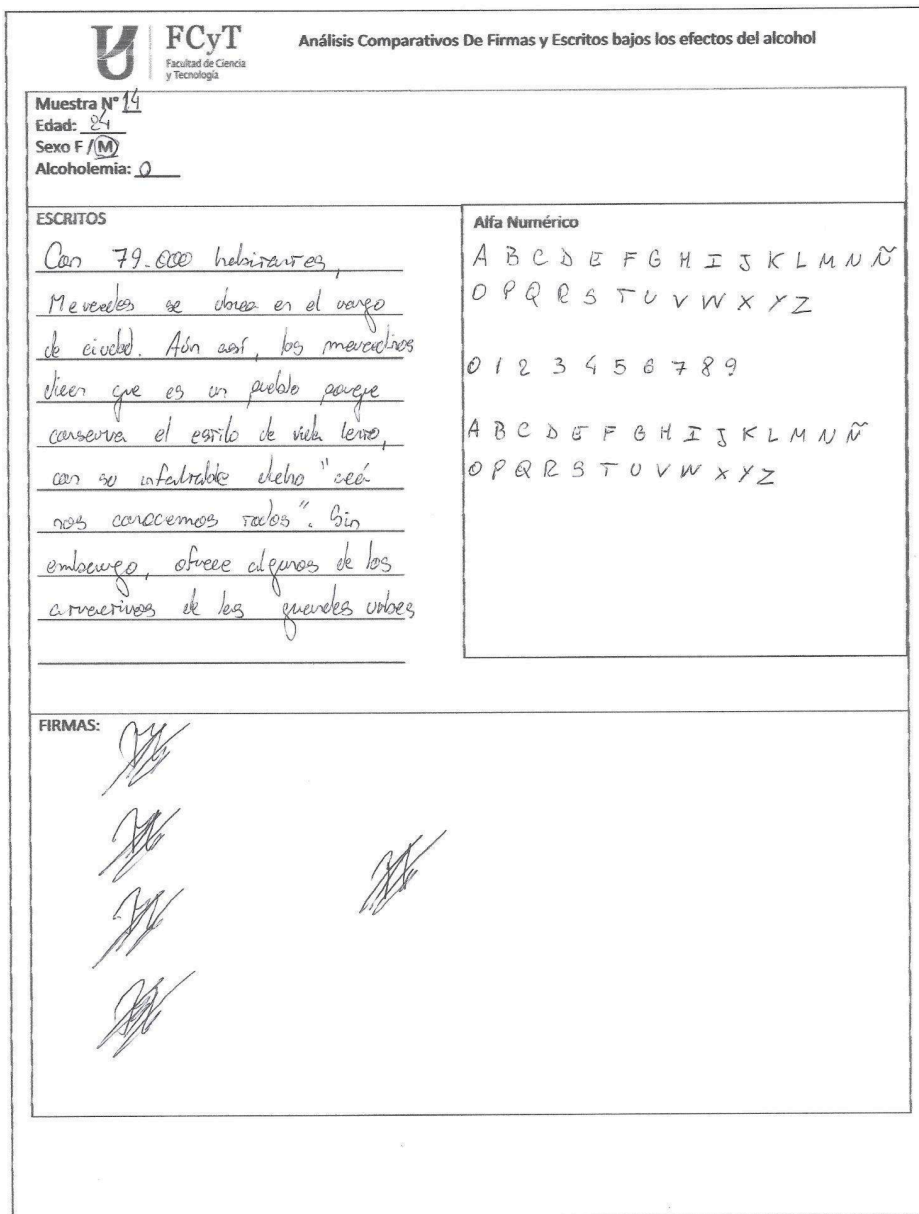 FCyT
Facultad de Ciencia
y Tecnología
Análisis Comparativos De Firmas y Escritos bajos los efectos del alcohol
Muestra N° 14
Edad: 24
Sexo F / M
Alcoholemia: 0
ESCRITOS
Con 79.000 habitantes,
Mercedes se ubica en el rango
de ciudad. Aún así, los mercedinos
dicen que es un pueblo porque
conserva el estilo de vida lento,
con su infaltable dicho "acá
nos conocemos todos". Sin
embargo, ofrece algunos de los
atractivos de las grandes urbes
Alfa Numérico
A B C D E F G H I J K L M N Ñ
O P Q R S T U V W X Y Z
0 1 2 3 4 5 6 7 8 9
A B C D E F G H I J K L M N Ñ
O P Q R S T U V W X Y Z
FIRMAS: